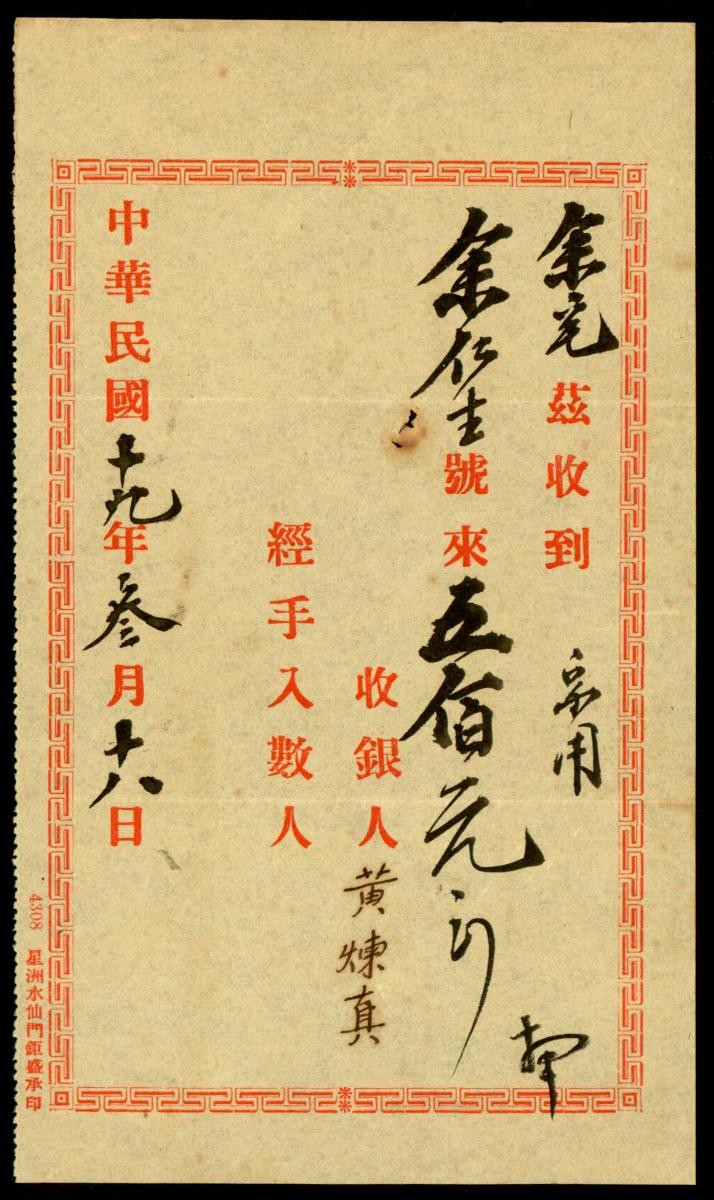 余宅茲收到
家用
余仁生號來五佰元
收銀人黃煉真
經手入數人
中華民國十九年叁月十八日
4308 星洲水仙門鉅盛承印